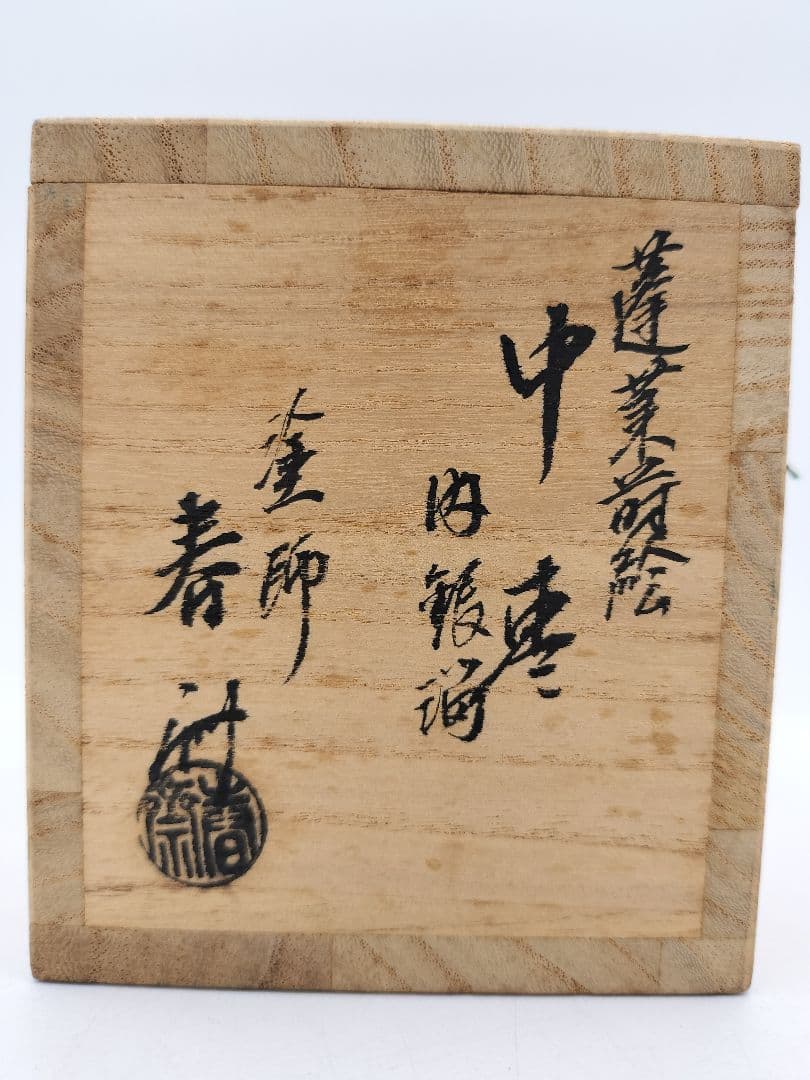 蓬莱蒔絵
中棗
内銀溜
塗師
春斎